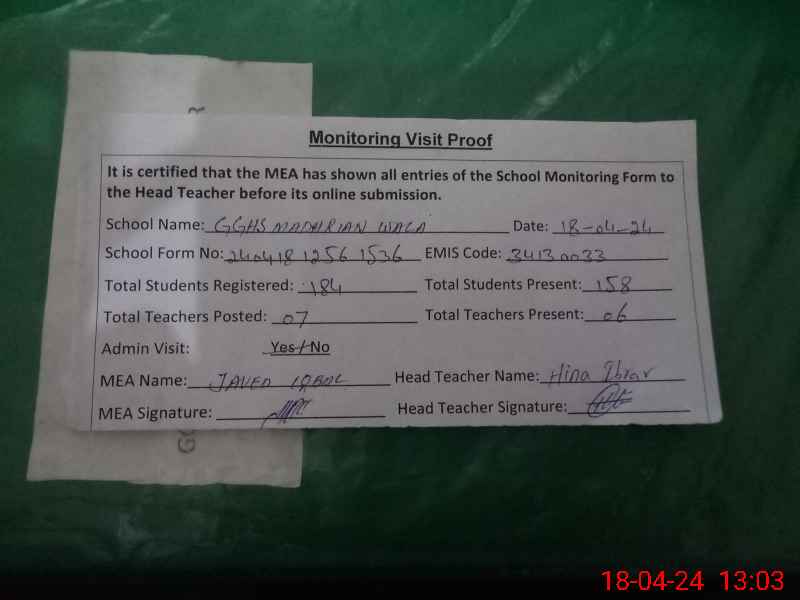 Monitoring Visit Proof
It is certified that the MEA has shown all entries of the School Monitoring Form to
the Head Teacher before its online submission.
School Name: GGHS MADHRIAN WALA Date: 18-04-24
School Form No: 240418 1256 1536 EMIS Code: 34130033
Total Students Registered: 184 Total Students Present: 158
Total Teachers Posted: 07 Total Teachers Present: 06
Admin Visit: Yes / No
MEA Name: JAVED IQBAL Head Teacher Name: Hina Ibrar
MEA Signature: Head Teacher Signature:
18-04-24 13:03